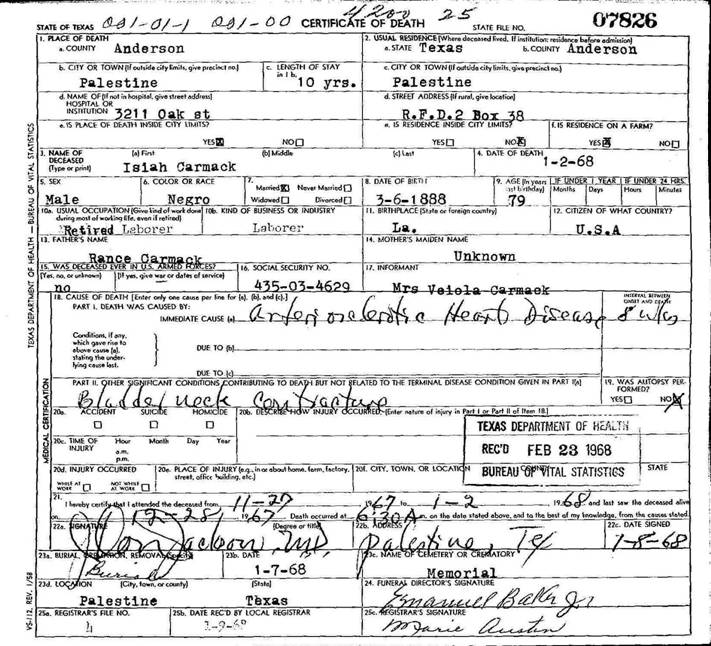 4200 25
STATE OF TEXAS 001-01-1 001-00 CERTIFICATE OF DEATH STATE FILE NO. 07826
1. PLACE OF DEATH
a. COUNTY Anderson
2. USUAL RESIDENCE (Where deceased lived. If institution: residence before admission)
a. STATE Texas b. COUNTY Anderson
b. CITY OR TOWN (If outside city limits, give precinct no.)
Palestine
c. LENGTH OF STAY in 1 b.
10 yrs.
c. CITY OR TOWN (If outside city limits, give precinct no.)
Palestine
d. NAME OF (If not in hospital, give street address)
HOSPITAL OR
INSTITUTION 3211 Oak st
d. STREET ADDRESS (If rural, give location)
R.F.D.2 Box 38
e. IS PLACE OF DEATH INSIDE CITY LIMITS?
YES☒ NO☐
e. IS RESIDENCE INSIDE CITY LIMITS?
YES☐ NO☒
f. IS RESIDENCE ON A FARM?
YES☒ NO☐
3. NAME OF DECEASED (Type or print)
(a) First (b) Middle (c) Last
Isiah Carmack
4. DATE OF DEATH
1-2-68
5. SEX
Male
6. COLOR OR RACE
Negro
7. Married☒ Never Married☐
Widowed☐ Divorced☐
8. DATE OF BIRTH
3-6-1888
9. AGE (In years last birthday)
79
IF UNDER 1 YEAR IF UNDER 24 HRS.
Months Days Hours Minutes
10a. USUAL OCCUPATION (Give kind of work done during most of working life, even if retired)
Retired Laborer
10b. KIND OF BUSINESS OR INDUSTRY
Laborer
11. BIRTHPLACE (State or foreign country)
La.
12. CITIZEN OF WHAT COUNTRY?
U.S.A
13. FATHER'S NAME
Rance Carmack
14. MOTHER'S MAIDEN NAME
Unknown
15. WAS DECEASED EVER IN U.S. ARMED FORCES?
(Yes, no, or unknown) (If yes, give war or dates of service)
no
16. SOCIAL SECURITY NO.
435-03-4629
17. INFORMANT
Mrs Veiola Carmack
18. CAUSE OF DEATH [Enter only one cause per line for (a), (b), and (c).]
INTERVAL BETWEEN ONSET AND DEATH
PART I. DEATH WAS CAUSED BY:
IMMEDIATE CAUSE (a) Arteriosclerotic Heart Disease 8 wks
Conditions, if any, which gave rise to above cause (a), stating the underlying cause last.
DUE TO (b)
DUE TO (c)
PART II. OTHER SIGNIFICANT CONDITIONS CONTRIBUTING TO DEATH BUT NOT RELATED TO THE TERMINAL DISEASE CONDITION GIVEN IN PART I(a)
Bladder neck Contracture
19. WAS AUTOPSY PERFORMED?
YES☐ NO☒
20a. ACCIDENT SUICIDE HOMICIDE
☐ ☐ ☐
20b. DESCRIBE HOW INJURY OCCURRED. (Enter nature of injury in Part I or Part II of Item 18.)
20c. TIME OF INJURY Hour Month Day Year
a.m.
p.m.
TEXAS DEPARTMENT OF HEALTH
REC'D FEB 23 1968
BUREAU OF VITAL STATISTICS
20d. INJURY OCCURRED
WHILE AT WORK ☐ NOT WHILE AT WORK ☐
20e. PLACE OF INJURY (e.g., in or about home, farm, factory, street, office building, etc.)
20f. CITY, TOWN, OR LOCATION STATE
21. I hereby certify that I attended the deceased from 11-27 1967 to 1-2 1968 and last saw the deceased alive
12-28 1967. Death occurred at 6:30 A m. on the date stated above, and to the best of my knowledge, from the causes stated.
22a. SIGNATURE (Degree or title)
Jackson, MD
22b. ADDRESS
Palestine, Tex
22c. DATE SIGNED
1-8-68
23a. BURIAL, CREMATION, REMOVAL (Specify)
Burial
23b. DATE
1-7-68
23c. NAME OF CEMETERY OR CREMATORY
Memorial
23d. LOCATION (City, town, or county) (State)
Palestine Texas
24. FUNERAL DIRECTOR'S SIGNATURE
Emanuel Baker Jr
25a. REGISTRAR'S FILE NO.
4
25b. DATE REC'D BY LOCAL REGISTRAR
1-9-68
25c. REGISTRAR'S SIGNATURE
Marie Austin
TEXAS DEPARTMENT OF HEALTH — BUREAU OF VITAL STATISTICS
MEDICAL CERTIFICATION
VS-112, REV. 1/58